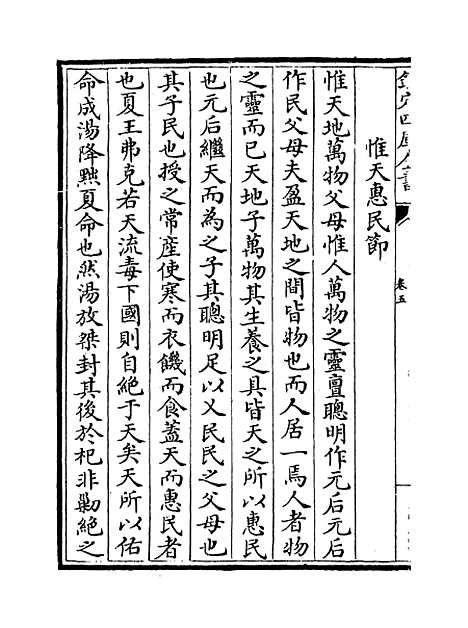 欽定四庫全書
卷五
惟天惠民節
惟天地萬物父母惟人萬物之靈亶聰明作元后元后
作民父母夫盈天地之間皆物也而人居一焉人者物
之靈而已天地子萬物其生養之具皆天之所以惠民
也元后繼天而為之子其聰明足以乂民民之父母也
其子民也授之常産使寒而衣饑而食蓋天而惠民者
也夏王弗克若天流毒下國則自絕于天矣天所以佑
命成湯降黜夏命也然湯放桀封其後於杞非勦絕之